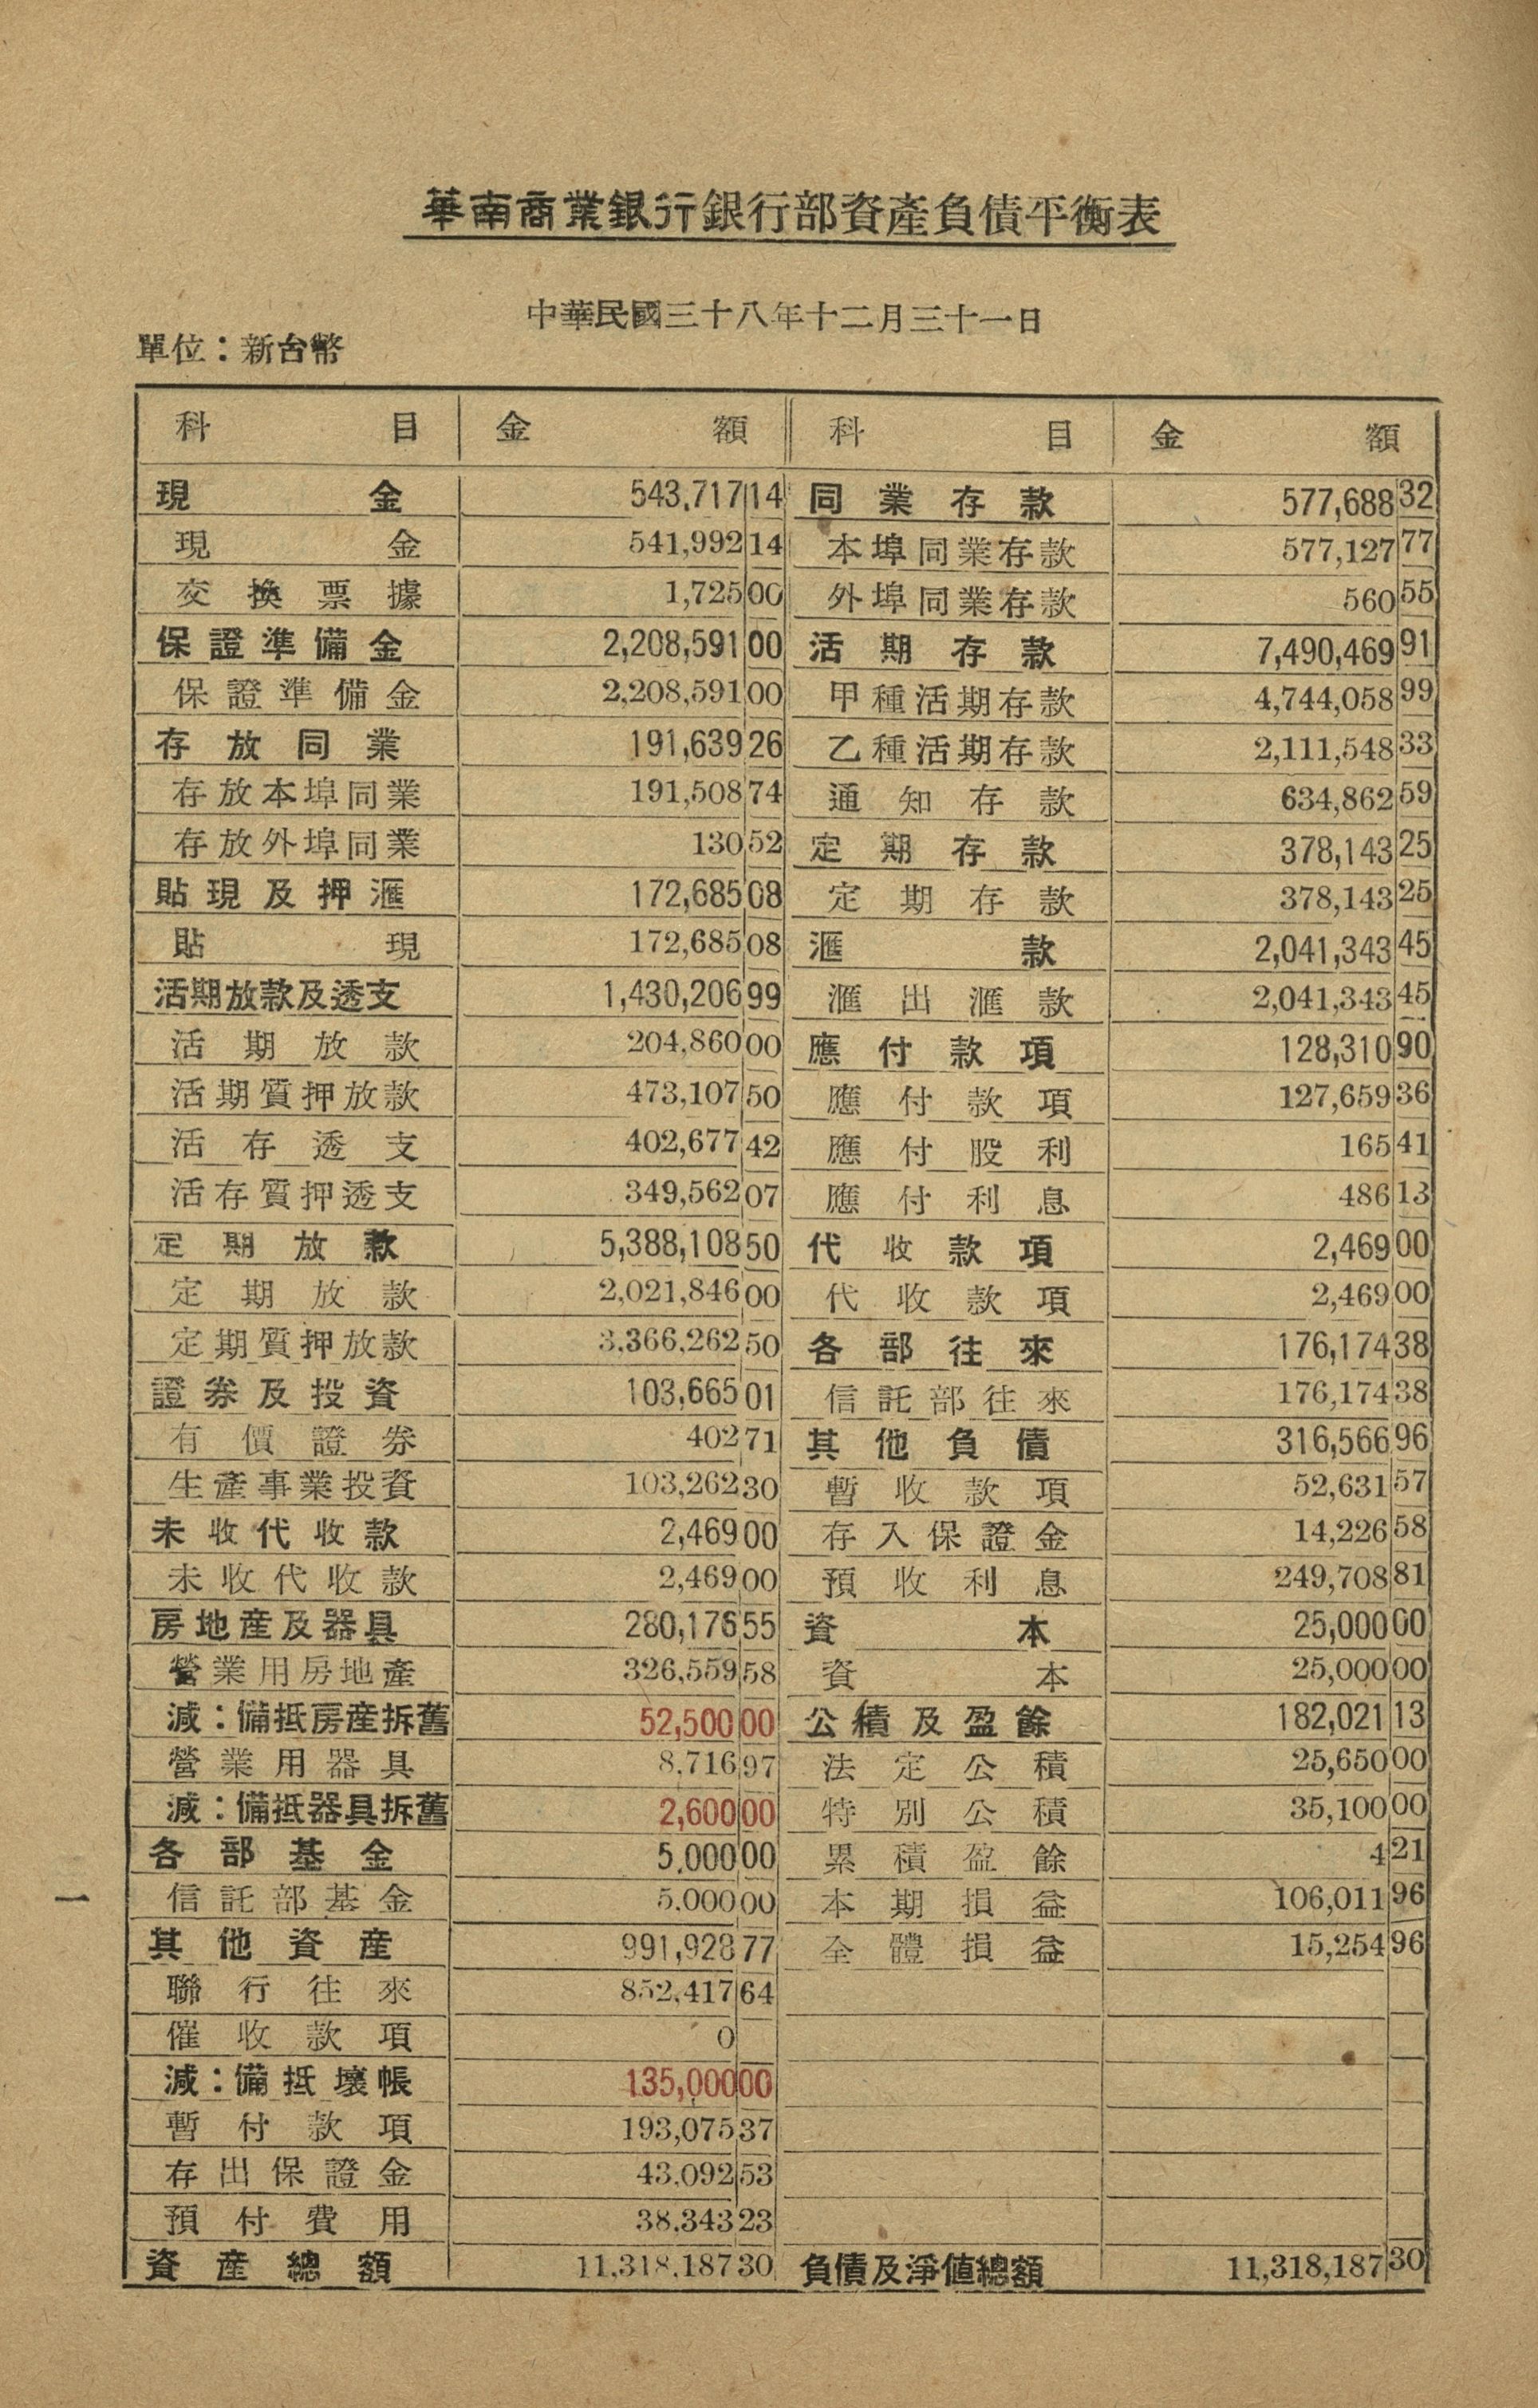 華南商業銀行銀行部資產負債平衡表
中華民國三十八年十二月三十一日
單位：新台幣
科目 金額 科目 金額
現金 543,717 14 同業存款 577,688 32
現金 541,992 14 本埠同業存款 577,127 77
交換票據 1,725 00 外埠同業存款 560 55
保證準備金 2,208,591 00 活期存款 7,490,469 91
保證準備金 2,208,591 00 甲種活期存款 4,744,058 99
存放同業 191,639 26 乙種活期存款 2,111,548 33
存放本埠同業 191,508 74 通知存款 634,862 59
存放外埠同業 130 52 定期存款 378,143 25
貼現及押滙 172,685 08 定期存款 378,143 25
貼現 172,685 08 滙款 2,041,343 45
活期放款及透支 1,430,206 99 滙出滙款 2,041,343 45
活期放款 204,860 00 應付款項 128,310 90
活期質押放款 473,107 50 應付款項 127,659 36
活存透支 402,677 42 應付股利 165 41
活存質押透支 349,562 07 應付利息 486 13
定期放款 5,388,108 50 代收款項 2,469 00
定期放款 2,021,846 00 代收款項 2,469 00
定期質押放款 3,366,262 50 各部往來 176,174 38
證券及投資 103,665 01 信託部往來 176,174 38
有價證券 402 71 其他負債 316,566 96
生產事業投資 103,262 30 暫收款項 52,631 57
未收代收款 2,469 00 存入保證金 14,226 58
未收代收款 2,469 00 預收利息 249,708 81
房地產及器具 280,176 55 資本 25,000 00
營業用房地產 326,559 58 資本 25,000 00
減：備抵房產拆舊 52,500 00 公積及盈餘 182,021 13
營業用器具 8,716 97 法定公積 25,650 00
減：備抵器具拆舊 2,600 00 特別公積 35,100 00
各部基金 5,000 00 累積盈餘 4 21
信託部基金 5,000 00 本期損益 106,011 96
其他資產 991,928 77 全體損益 15,254 96
聯行往來 852,417 64
催收款項 0
減：備抵壞帳 135,000 00
暫付款項 193,075 37
存出保證金 43,092 53
預付費用 38,343 23
資產總額 11,318,187 30 負債及淨值總額 11,318,187 30
一